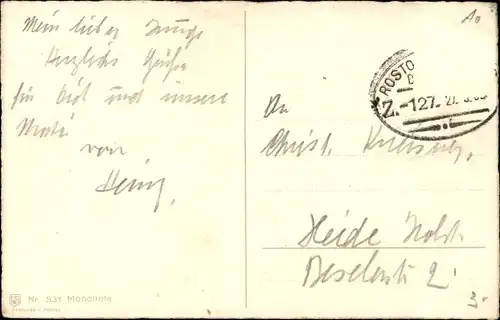 Mein lieber Junge
Herzliche Grüße
für Dich und unsere
von
Heinz,
Nr. 531 Mandrola
ROSTO
Z.-127.
An
Christ.
Heide Holst.
Beselerstr 2.
3.-